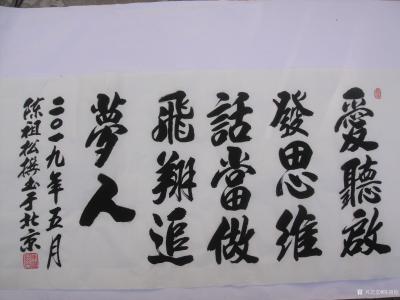 愛聽啟
發思維
話當做
飛翔追
夢人
二〇一九年五月
陈祖松撰书于北京